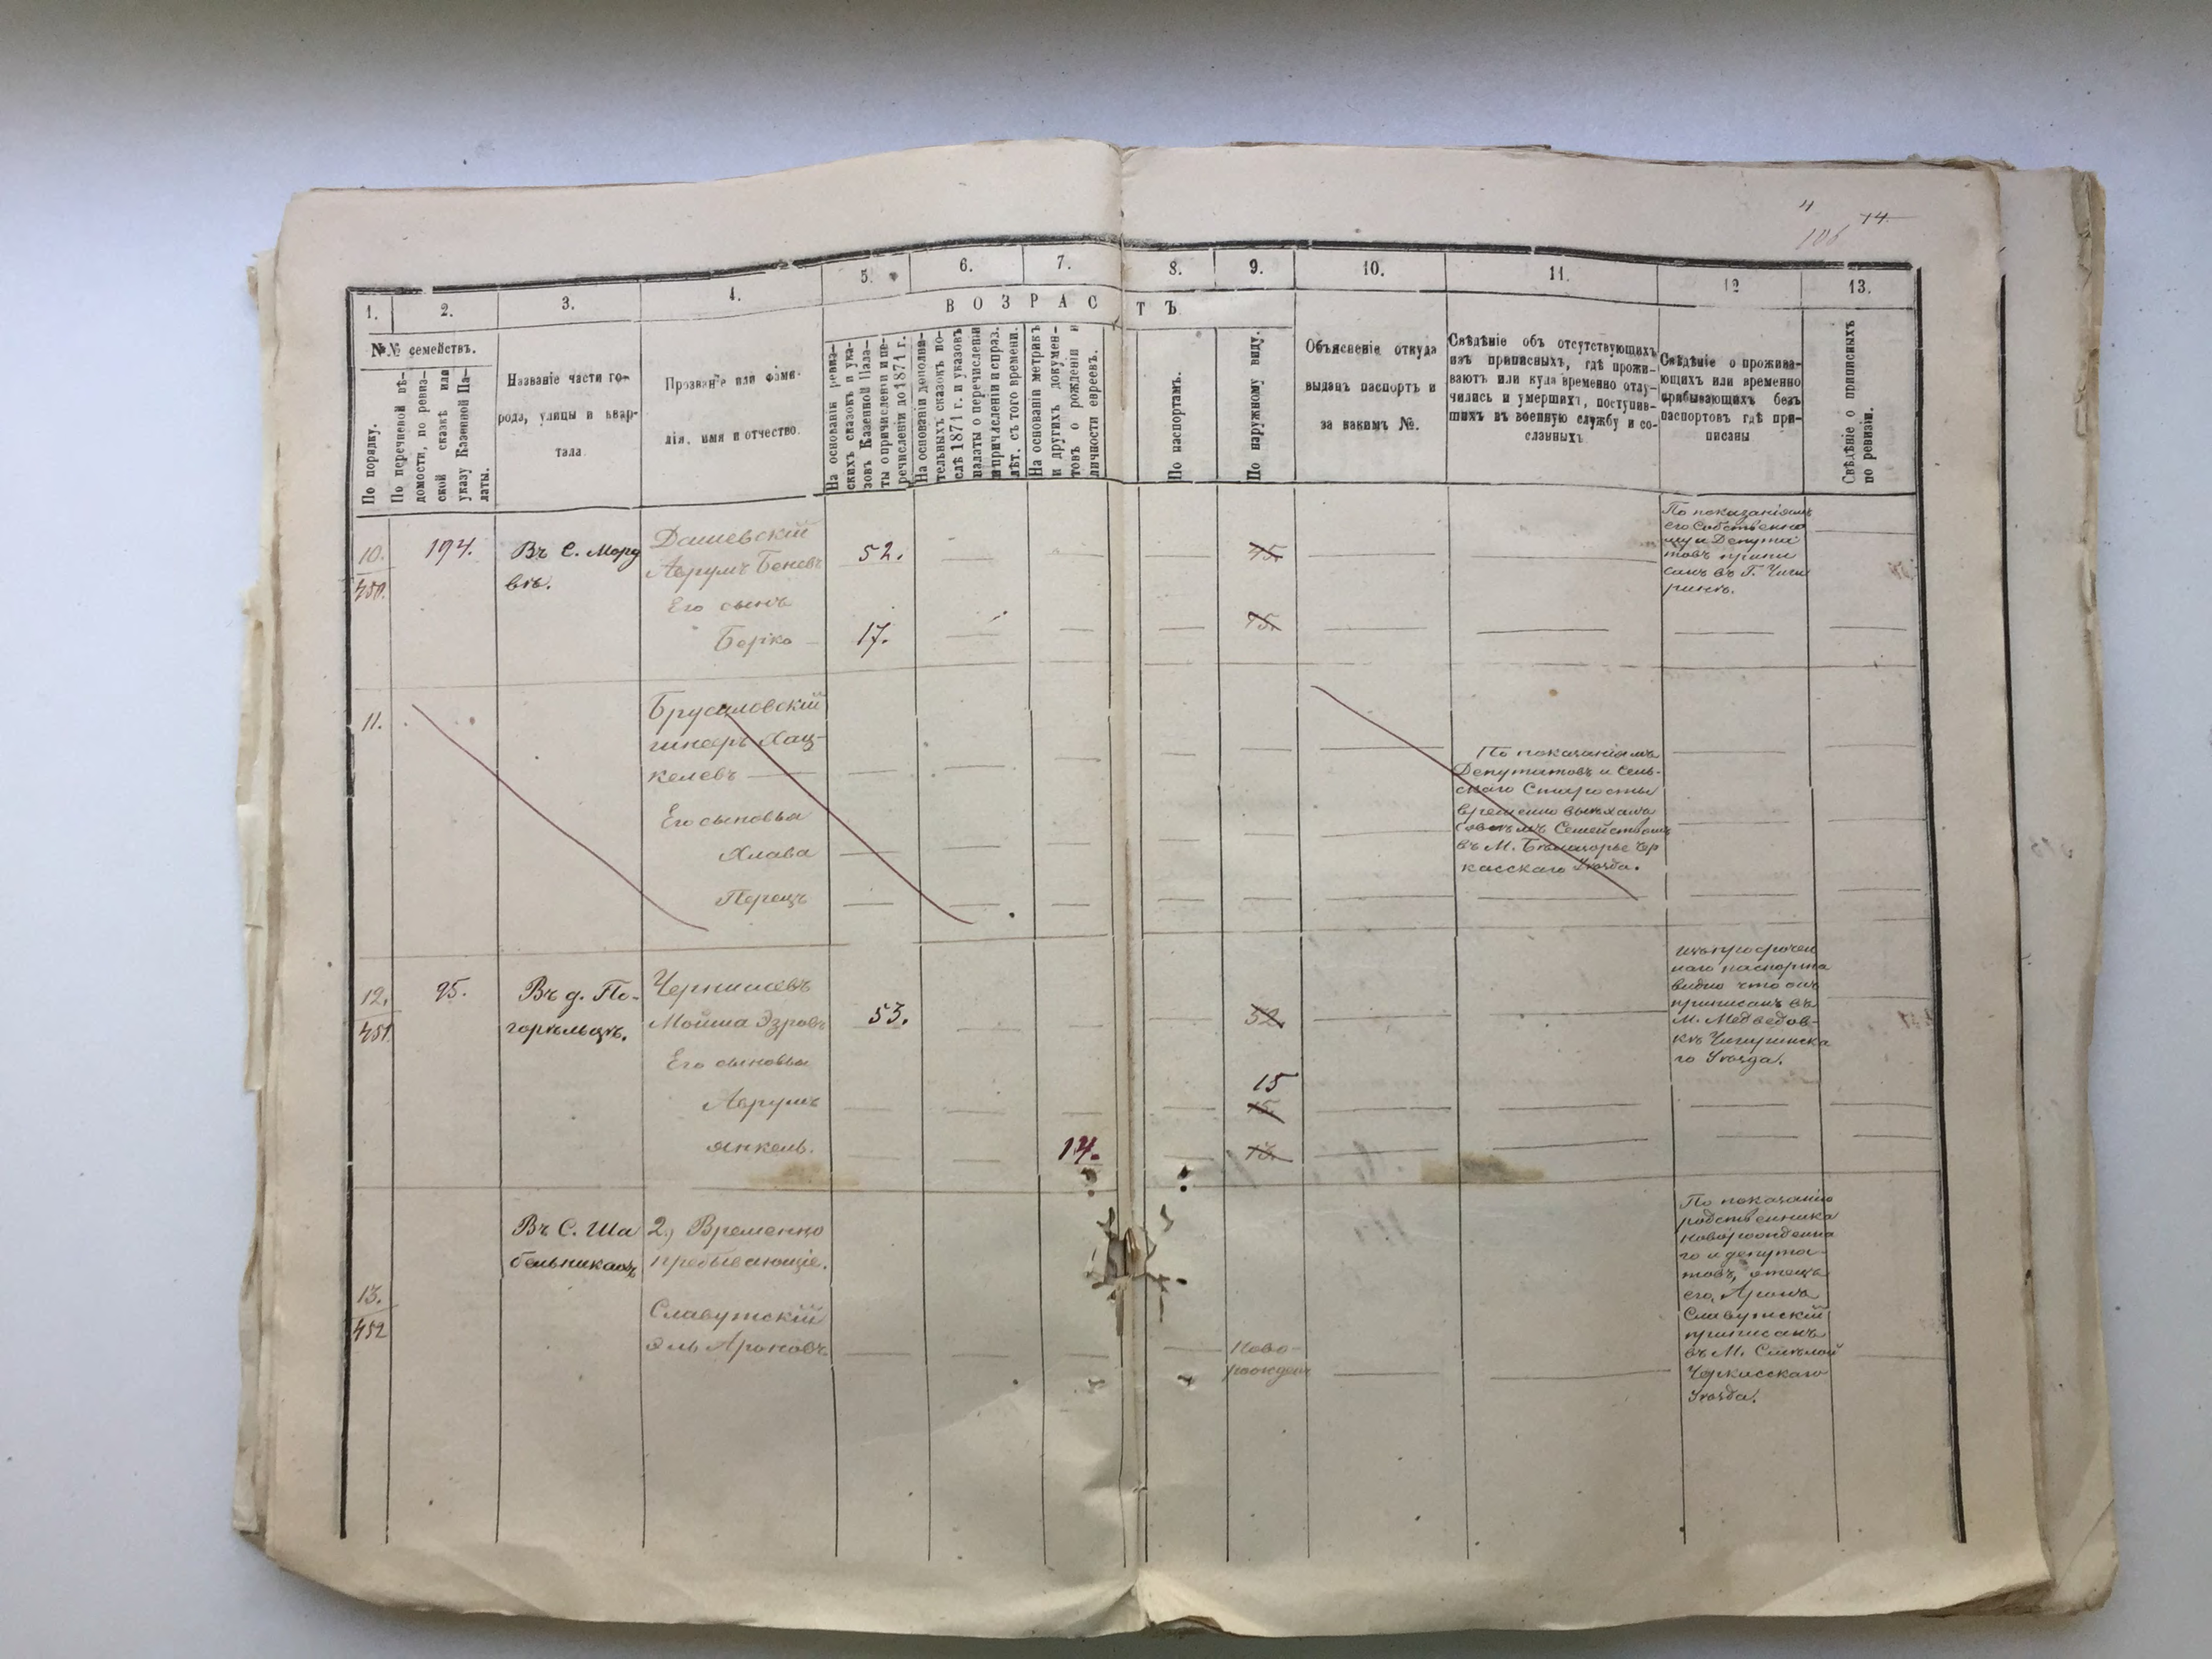 4
14.
106
1.
2.
3.
4.
5.
6.
7.
8.
9.
10.
11.
12
13.
№№ семействъ.
По порядку.
По перечневой вѣ-
домости, по ревиз-
ской сказкѣ или
указу Казенной Па-
латы.
Названіе части го-
рода, улицы и квар-
тала.
Прозваніе или фами-
лія, имя и отчество.
ВОЗРАСТЪ
На основаніи ревиз-
скихъ сказокъ и ука-
зовъ Казенной Пала-
ты о причисленіи и пе-
речисленіи до 1871 г.
На основаніи дополни-
тельныхъ сказокъ по-
слѣ 1871 г. и указовъ
палаты о перечисленіи
и причисленіи и справ.
лѣт. съ того времени.
На основаніи метрикъ
и другихъ докумен-
товъ о рожденіи и
личности евреевъ.
По паспортамъ.
По наружному виду.
Объясненіе откуда
выданъ паспортъ и
за какимъ №.
Свѣдѣніе объ отсутствующихъ
изъ приписныхъ, гдѣ прожи-
ваютъ или куда временно отлу-
чились и умершихъ, поступив-
шихъ въ военную службу и со-
сланныхъ
Свѣдѣніе о прожива-
ющихъ или временно
прибывающихъ безъ
паспортовъ гдѣ при-
писаны
Свѣдѣніе о приписныхъ
по ревизіи.
10.
450.
194.
Въ С. Мору
вѣ.
Дашевскій
Аврумъ Беневъ
52.
45.
По показаніямъ
его Собственно
му и Депута
товъ припи
санъ въ Г. Чиги
ринѣ.
Его сынъ
Берко
17.
15.
11.
Брусиловскій
Хац-
келевъ
Его сыновья
Хлава
Перецъ
По показаніямъ
Депутатовъ и Сель-
скаго Старосты
временно выѣхалъ
Семействомъ
въ М. Бѣлозорье Чер
касскаго Уѣзда.
12.
451.
95.
Въ д. По-
горѣльцѣ.
Чернишевъ
Мойша Эзровъ
53.
52.
Изъ просрочен
наго паспорта
видно что онъ
приписанъ въ
М. Медведов-
кѣ Чигиринска
го Уѣзда.
Его сыновья
Аврумъ
15
15.
Янкель.
14.
13.
Въ С. Ша
бельникахъ
2.) Временно
пребывающіе.
13.
452
Славутскій
Эль Ароновъ
Ново-
рожден
По показанію
родственника
новорожденна
го и депута-
товъ, отецъ
его, Аронъ
Славутскій
приписанъ
въ М. Смѣлой
Черкасскаго
Уѣзда.